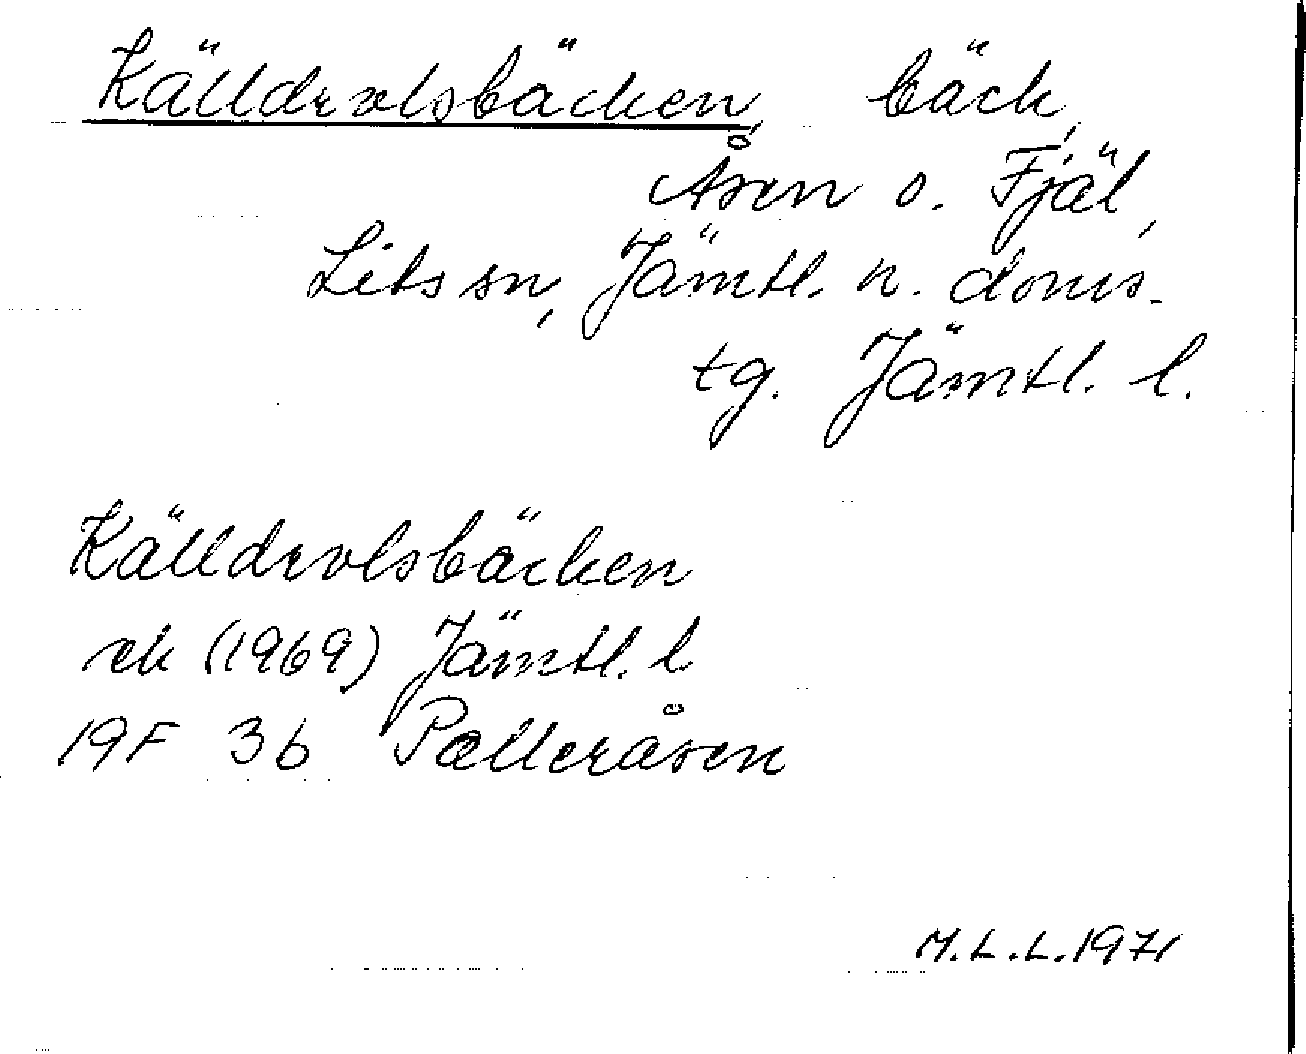 Källdrolsbäcken, bäck,
Åsen o. Fjäl,
Lits sn, Jämtl. n. doms.
tg. Jämtl. l.
Källdrolsbäcken
ek (1969) Jämtl. l
19F 3b Palleråsen
M.L.L. 1971